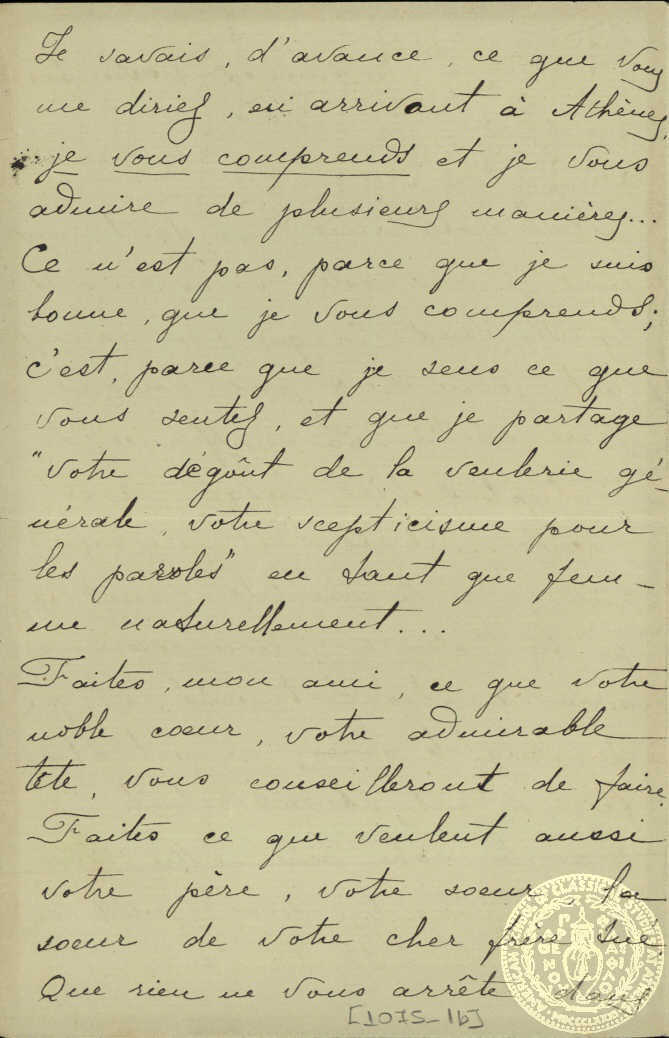 Je savais, d'avance, ce que vous
me diriez, en arrivant à Athènes,
je vous comprends et je vous
admire de plusieurs manières...
Ce n'est pas, parce que je suis
bonne, que je vous comprends;
c'est, parce que je sens ce que
vous sentez, et que je partage
"votre dégoût de la veulerie gé-
nérale, votre scepticisme pour
les paroles" en tant que fem-
me naturellement...
Faites, mon ami, ce que votre
noble cœur, votre admirable
tête, vous conseilleront de faire.
Faites ce que veulent aussi
votre père, votre soeur, la
soeur de votre cher frère tué.
Que rien ne vous arrête dans
[1075-16]